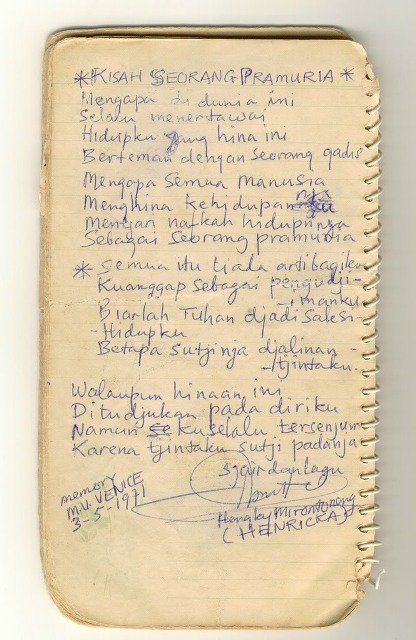 * KISAH SEORANG PRAMURIA *
Mengapa di dunia ini
Selalu menertawai
Hidupku yang hina ini
Berteman dengan seorang gadis
Mengapa semua manusia
Menghina kehidupannja
Mentjari nafkah hidupnnya
Sebagai seorang pramuria
* Semua itu tiada artibagiku
Kuanggap sebagai pengudji-
-imanku
Biarlah Tuhan djadi saksi-
-Hidupku
Betapa sutjinja djalinan-
-tjintaku.
Walaupun hinaan ini
Ditudjukan pada diriku
Namun kuselalu tersenjum
Karena tjintaku sutji padanja
sjair dan lagu
memory
M.V. VENICE
3-5-1971
Hengky Mirontoneng
(HENRICKA)